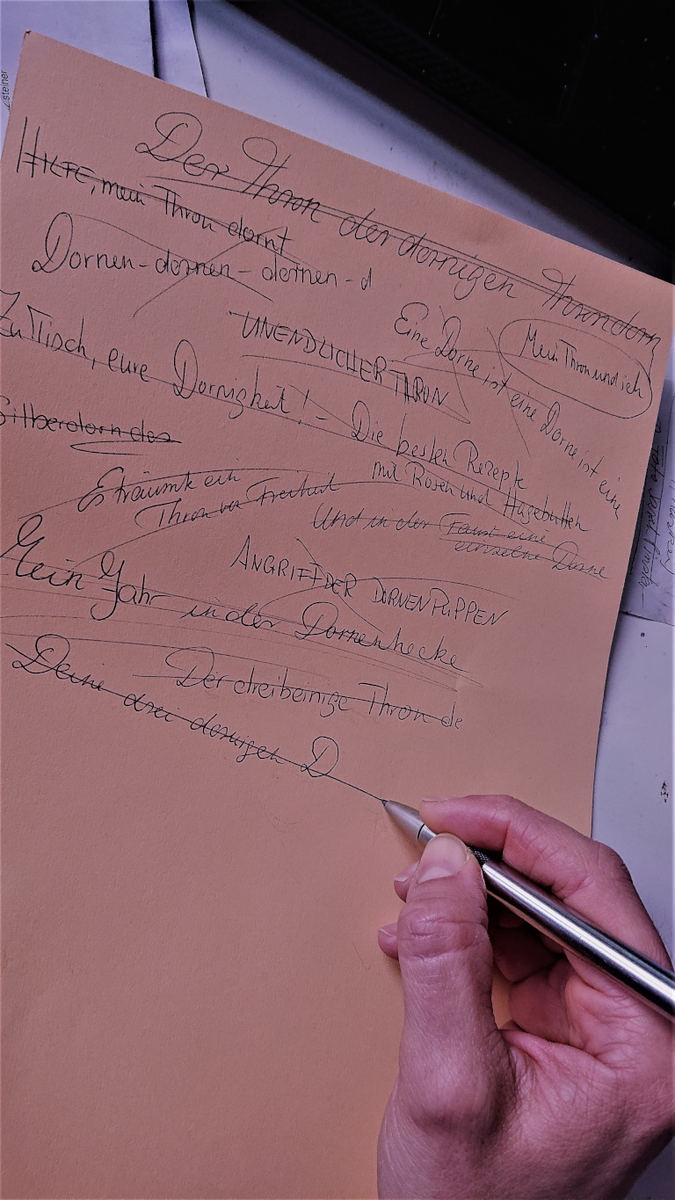 Der Thron der dornigen Throndorn
HILFE, mein Thron dornt
Dornen-dornen-dornen-d
UNENDLICHER THRON
Eine Dorne ist eine Dorne ist eine
Mein Thron und ich
Zu Tisch, eure Dornigkeit! - Die besten Rezepte
mit Rosen und Hagebutten
Silberdorn des
Es träumte ein
Thron von Freiheit
Und in der Faust eine
einzelne Dorne
ANGRIFF DER DORNENPUPPEN
Mein Jahr in der Dornenhecke
Der dreibeinige Thron de
Deine drei dornigen D
steiner